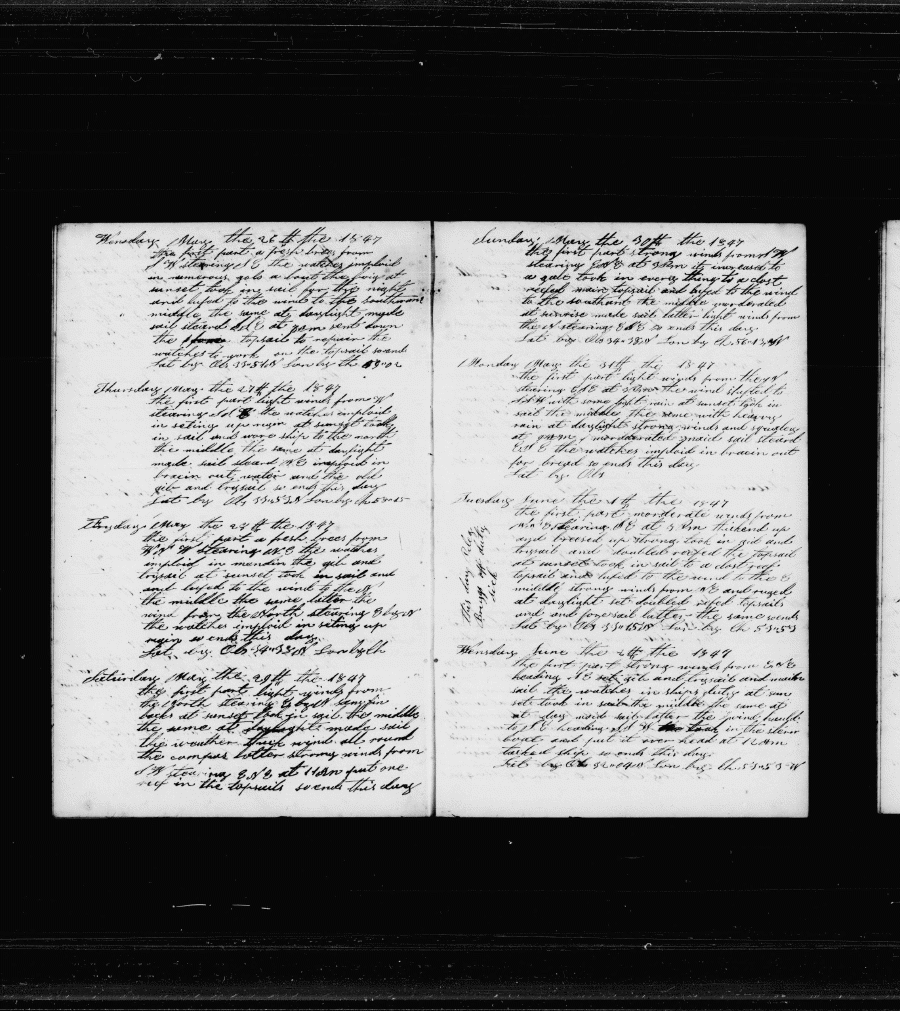 Wensday May the 26th the 1847
the first part a fresh brees from
S W stearing N E the watches imploid
in numerous gobs a bout the brig at
sunset took in sail for the night
and lufed to the wind to the southward
middle the same at daylight made
sail steard N E at 9 am sent down
the topsail to repair the
watches to work on the topsail so ends
Lat by Obs 33-51 N Lon by Ch
Thursday May the 27th the 1847
the first part light winds from W
stearing N E the watches imploid
in seting up rigin at sunset took
in sail and wore ship to the north
the middle the same at daylight
made sail steard N E imploid in
brakin out water and the old
gib and trysail so ends this day
Lat by Ob 33-53 N Lon by Ch
Fryday May the 28th the 1847
the first part a fresh brees from
W N W stearing N E the watches
imploid in mendin the gib and
trysail at sunset took in sail and
and lufed to the wind to the N
the middle the same latter the
wind from the North stearing E by N
the watches imploid in seting up
rigin so ends this day
Lat by Ob 34-33 N Lon by Ch
Saturday May the 29th the 1847
the first part light winds from
the North stearing E by N
at sunset took in sail the middle
the same at daylight made sail
the weather wind all round
the compas latter strong winds from
S W stearing E N E at 11 am put one
reef in the topsails so ends this day
Sunday May the 30th the 1847
the first part strong winds from S W
stearing E N E at 3 am it increasd to
a gale took in every thing to a clost
reefed main topsail and lufed to the wind
to the southard the middle morderated
at sunrise made sail latter light winds from
the N stearing E N E so ends this day
Lat by Ob 34-38 N Lon by Ch 56-13 W
Monday May the 31th the 1847
the first part light winds from the
stearing E N E at the wind shifted to
with some light rain at sunset took in
sail the middle the same with heavy
rain at daylight strong winds and squaley
at morderated maid sail steard
E N E the watches imploid in brakin out
for bread so ends this day
Lat by Ob
Tuesday June the 1th the 1847
the first part morderate winds from
stearing N E at 3 am thickend up
and breesed up strong took in gib and
trysail and doubled reefed the topsail
at sunset took in sail to a clost reef
topsail and lufed to the wind to the E
middle strong winds from N E and ruged
at daylight set doubled reefed topsails
and foresail latter the same so ends
Lat by Ob 33-15 N Lon by Ch 53-53
this day
Briggs off duty
sick
Wensday June the 2th the 1847
the first part strong winds from E N E
heading N E set gib and trysail and main
sail the watches in ships duty at sun
set took in sail the middle the same at
at day maid sail latter the wind hauld
to N E heading N W took in the stern
boat and put it over head at 12 am
tacked ship so ends this day
Lat by Ob 32-04 N Lon by Ch 53-53 W